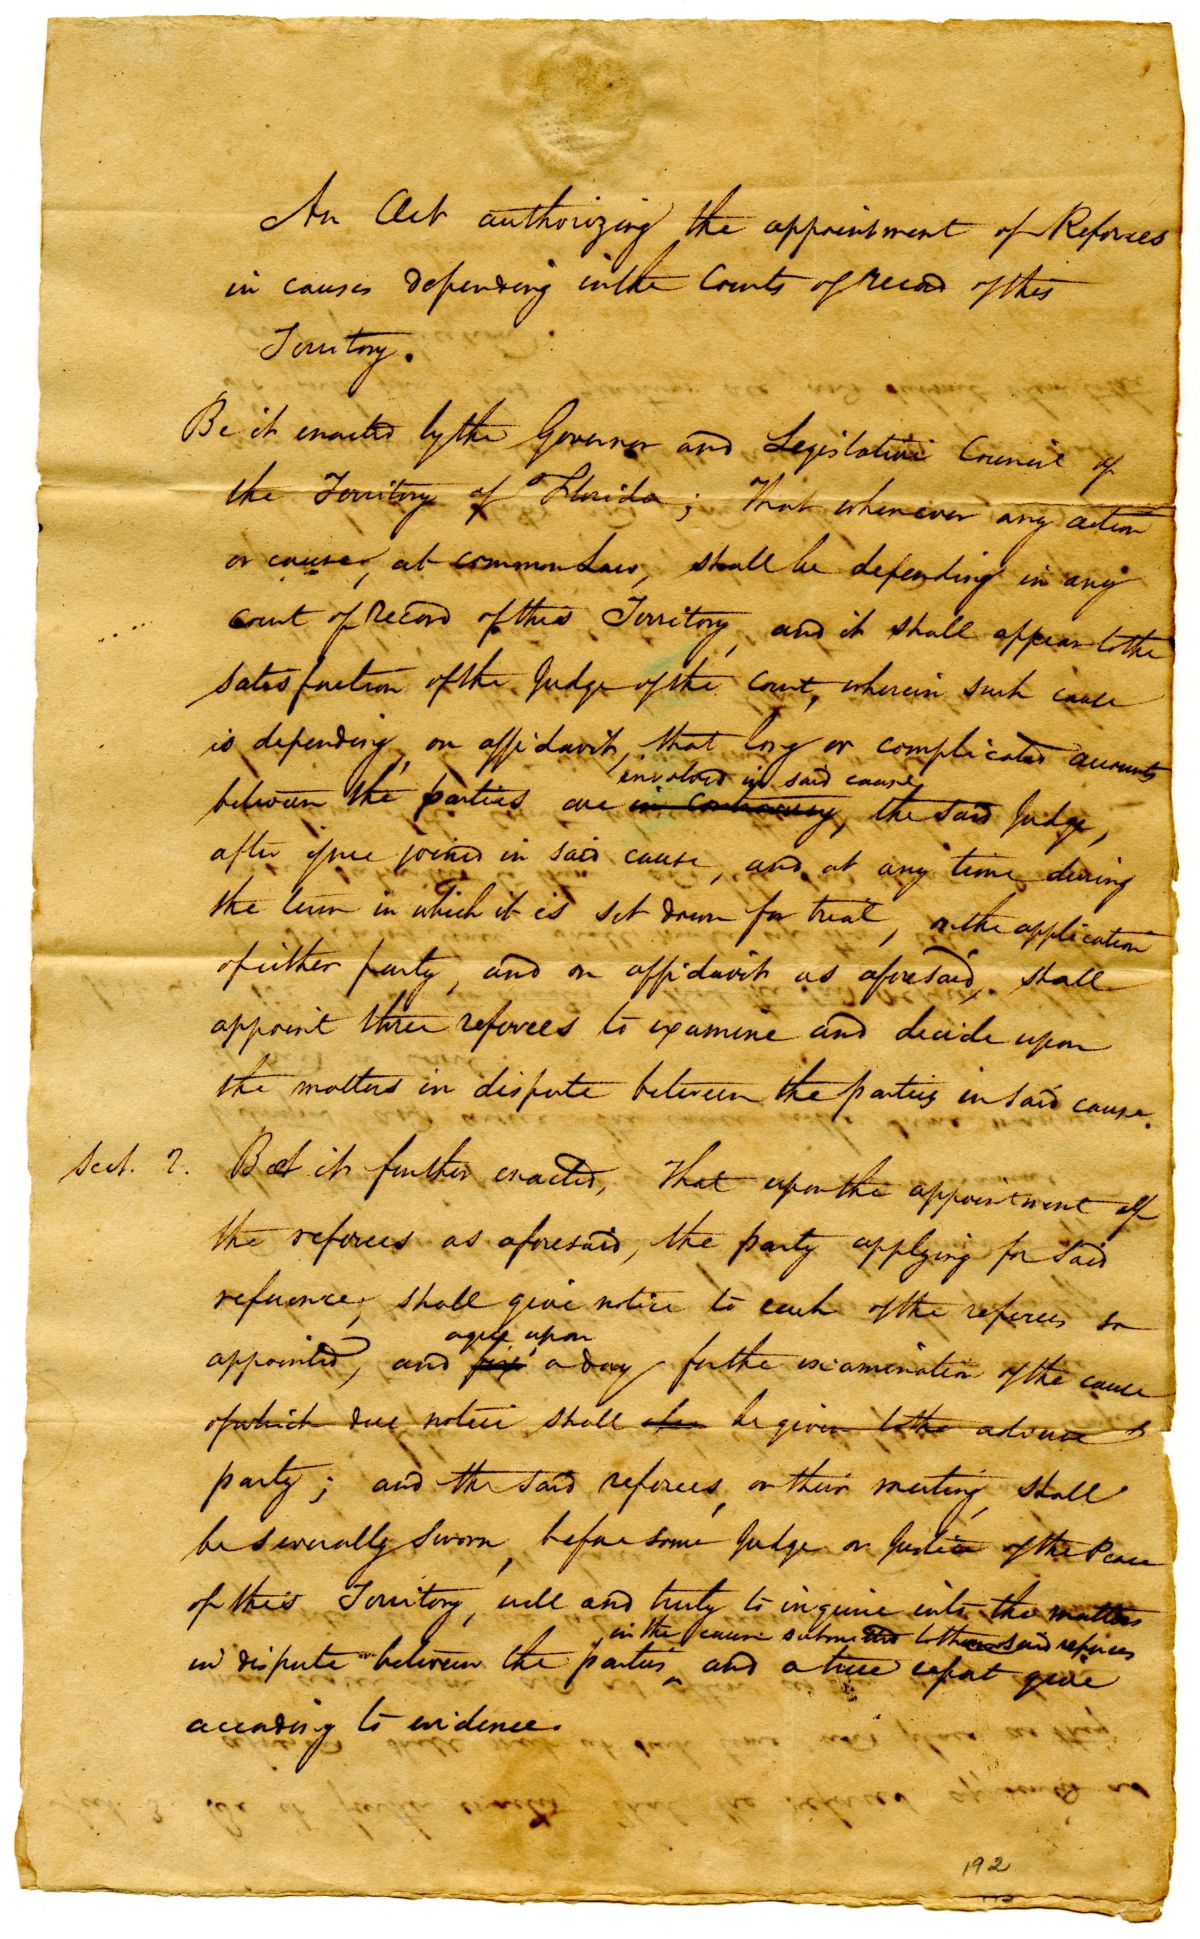 An Act authorizing the appointment of Referees
in causes depending in the Courts of record of this
Territory.
Be it enacted by the Governor and Legislative Council of
the Territory of Florida; That whenever any action
or cause, at common Law, shall be depending in any
court of record of this Territory, and it shall appear to the
satisfaction of the Judge of the court, wherein such cause
is depending, on affidavit, that long or complicated accounts
involved in said cause
between the parties are in controversy, the said Judge,
after issue joined in said cause, and at any time during
the term in which it is set down for trial, on the application
of either party, and on affidavit as aforesaid, shall
appoint three referees to examine and decide upon
the matters in dispute between the parties in said cause.
Sect. 2. Be it further enacted, That upon the appointment of
the referees as aforesaid, the party applying for said
reference, shall give notice to each of the referees so
agree upon
appointed, and fix a day for the examination of the cause
of which due notice shall be given to the adverse
party; and the said referees, on their meeting, shall
be severally sworn, before some Judge or Justice of the Peace
of this Territory, well and truly to inquire into the matters
in the cause submitted to them said referees
in dispute between the parties, and a true report give
according to evidence.
192